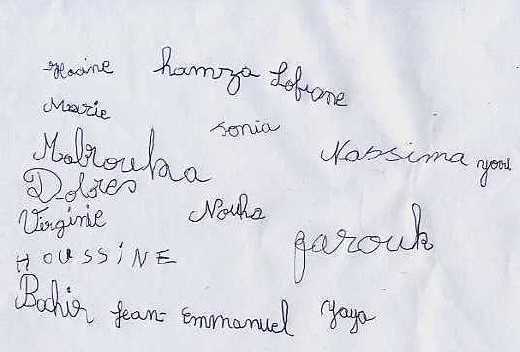 Hocine hamza Lofrane
Marie
sonia
Mabrouka Nassima
Dolores
Virginie Nouha
farouk
HOUSSINE
Bachir Jean-Emmanuel Yaya